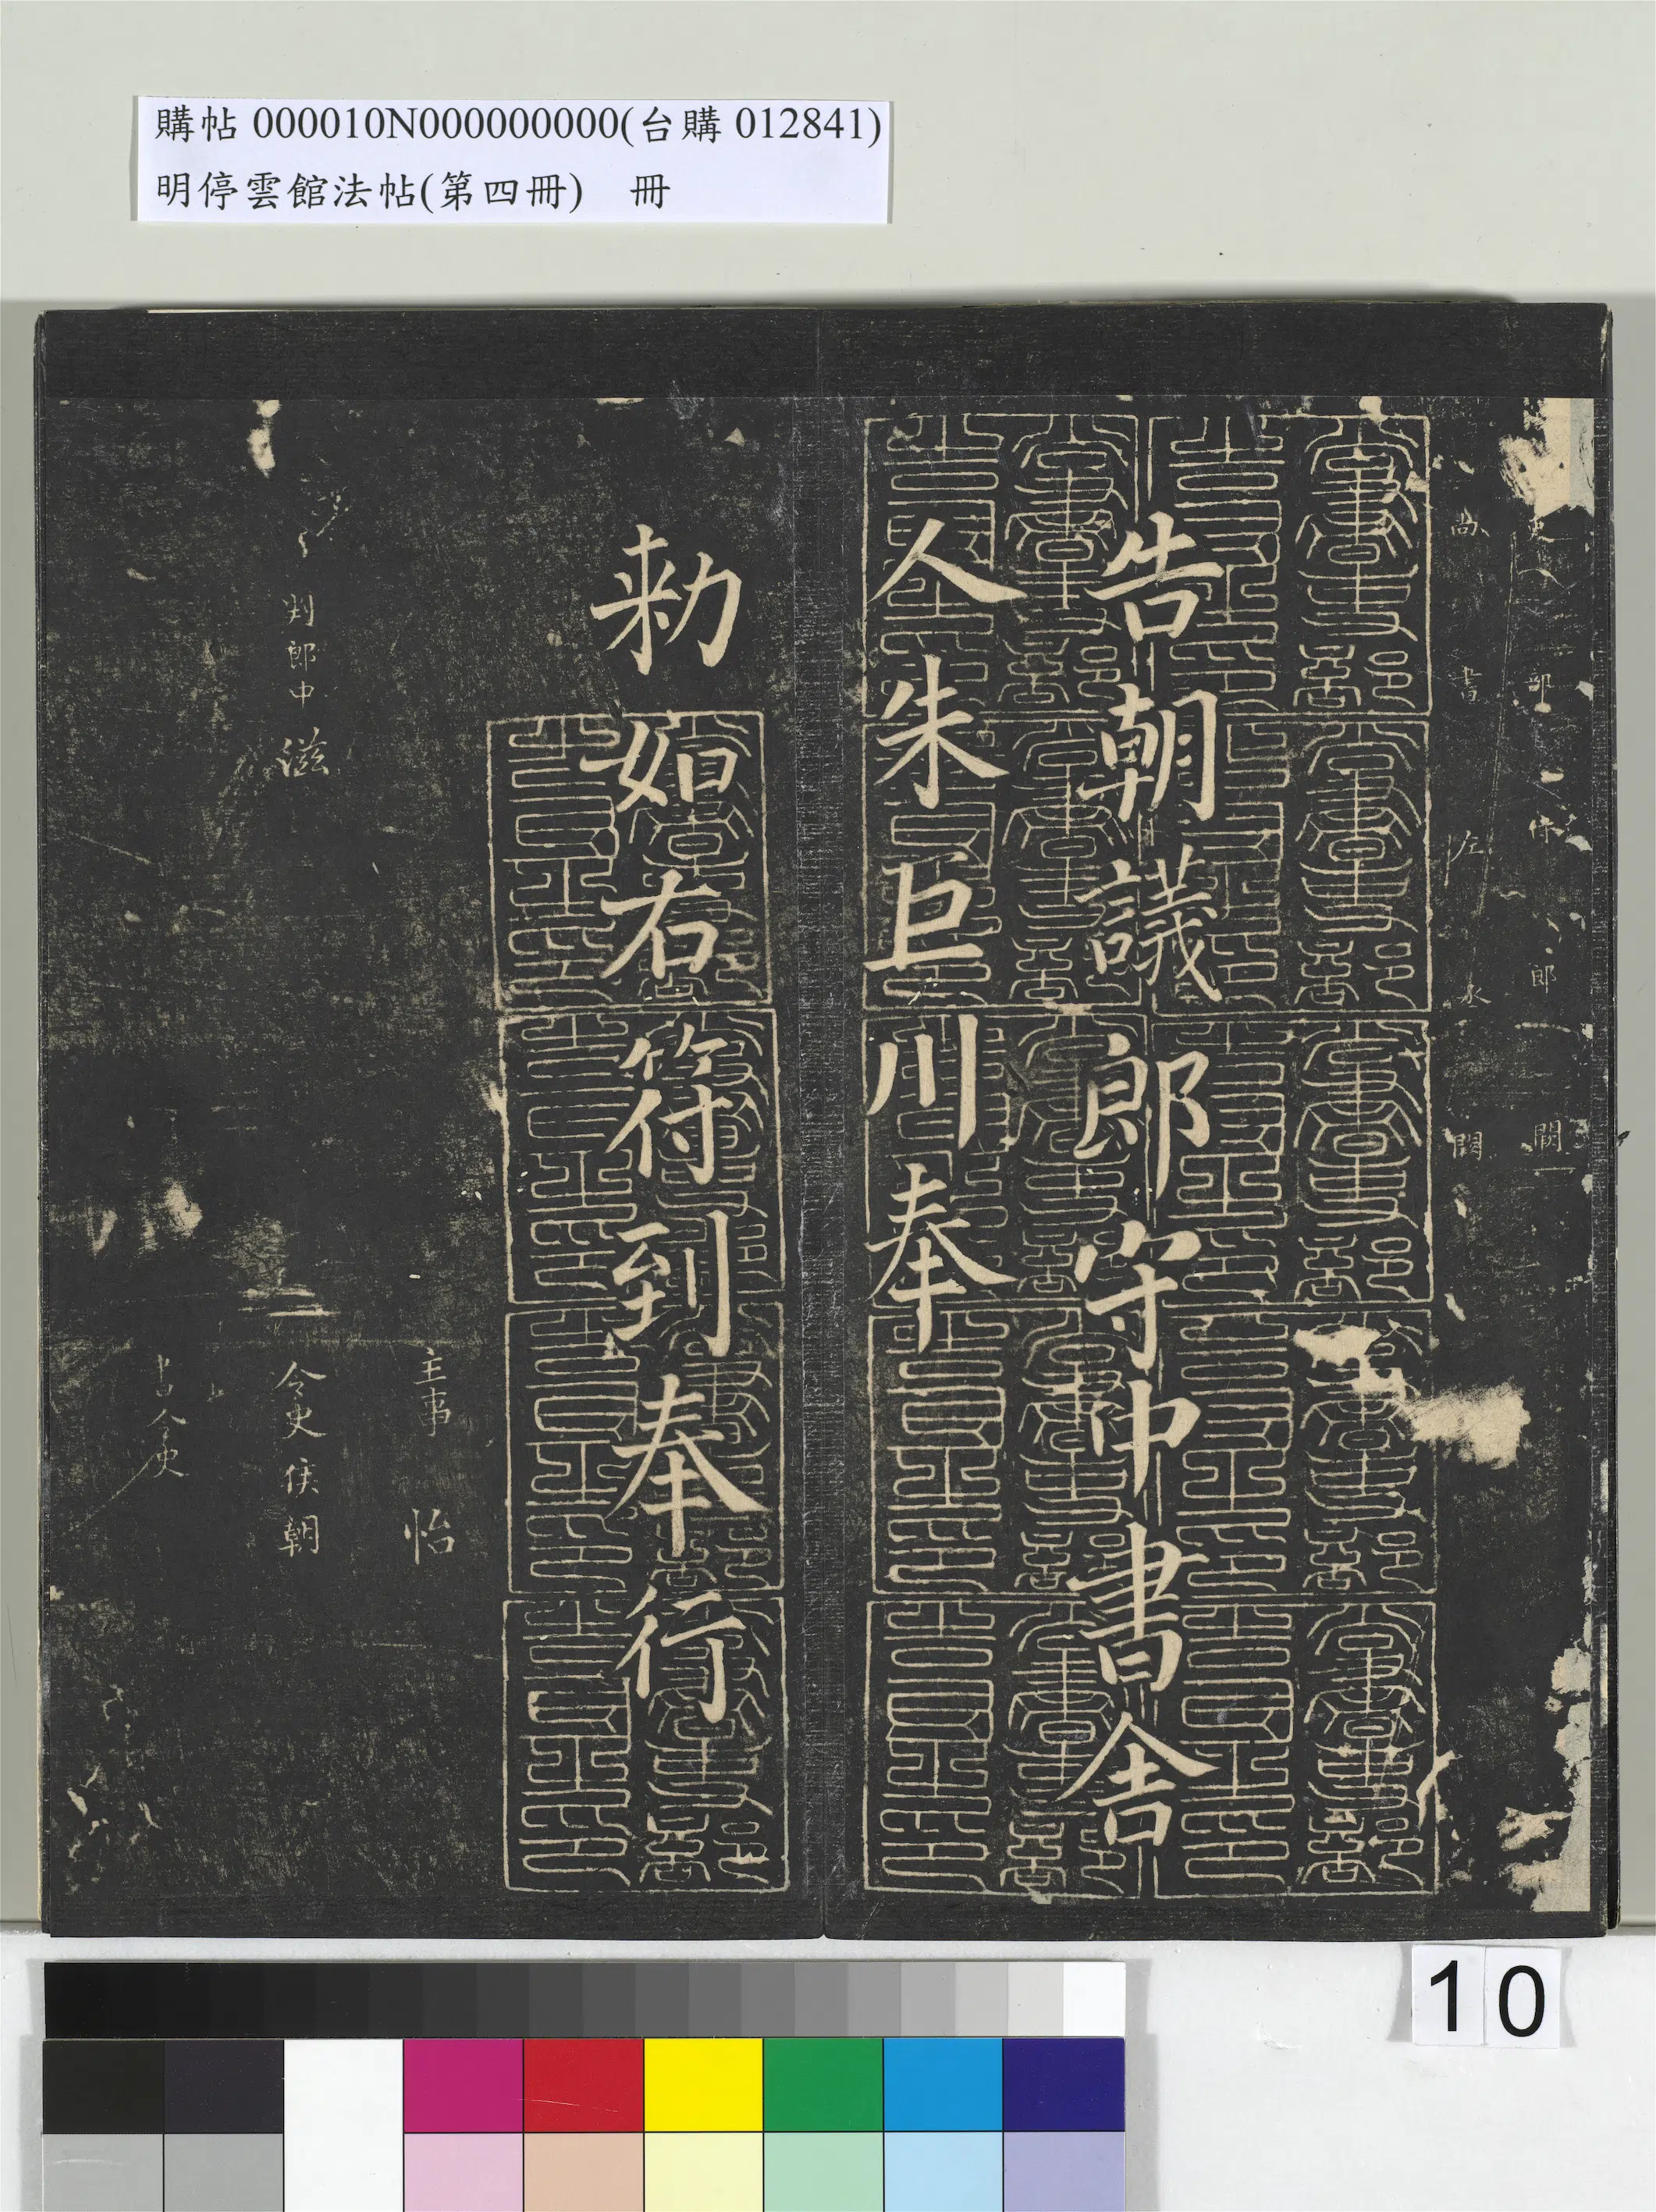 購帖 000010N000000000(台購 012841)
明停雲館法帖(第四冊)　冊
吏部侍郎闕
尚書左丞闕
告朝議郎守中書舍
人朱巨川奉
勅如右符到奉行
主事怡
判郎中滋
令史侯朝
書令史
尚書吏部告身之印
10